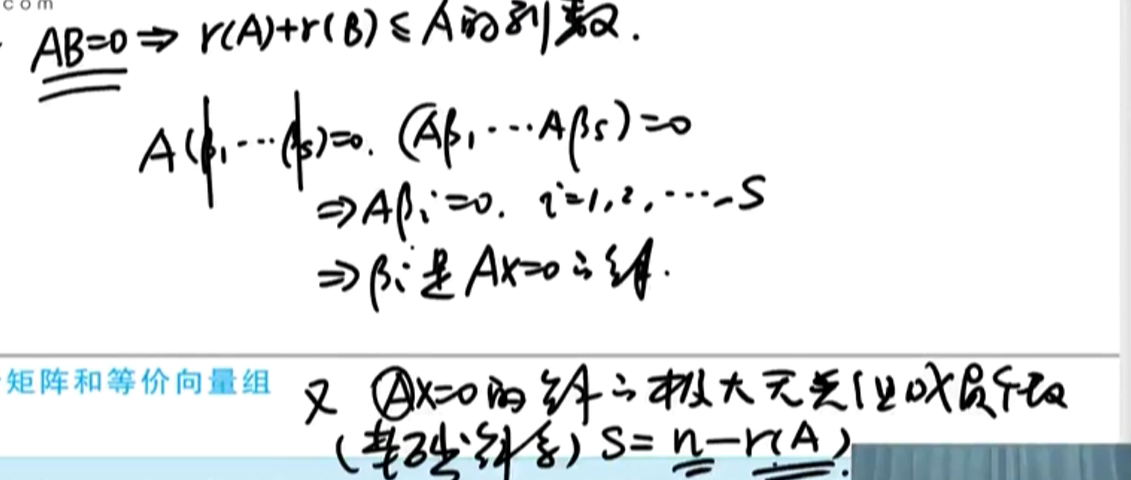 com
AB=0 ⇒ r(A)+r(B) ≤ A的列数.
A(β₁,…βs)=0. (Aβ₁,…Aβs)=0
⇒Aβi=0. i=1,2,…,S
⇒βi是Ax=0的解.
矩阵和等价向量组
又 Ax=0的解的极大无关
(基础解系) S=n-r(A).